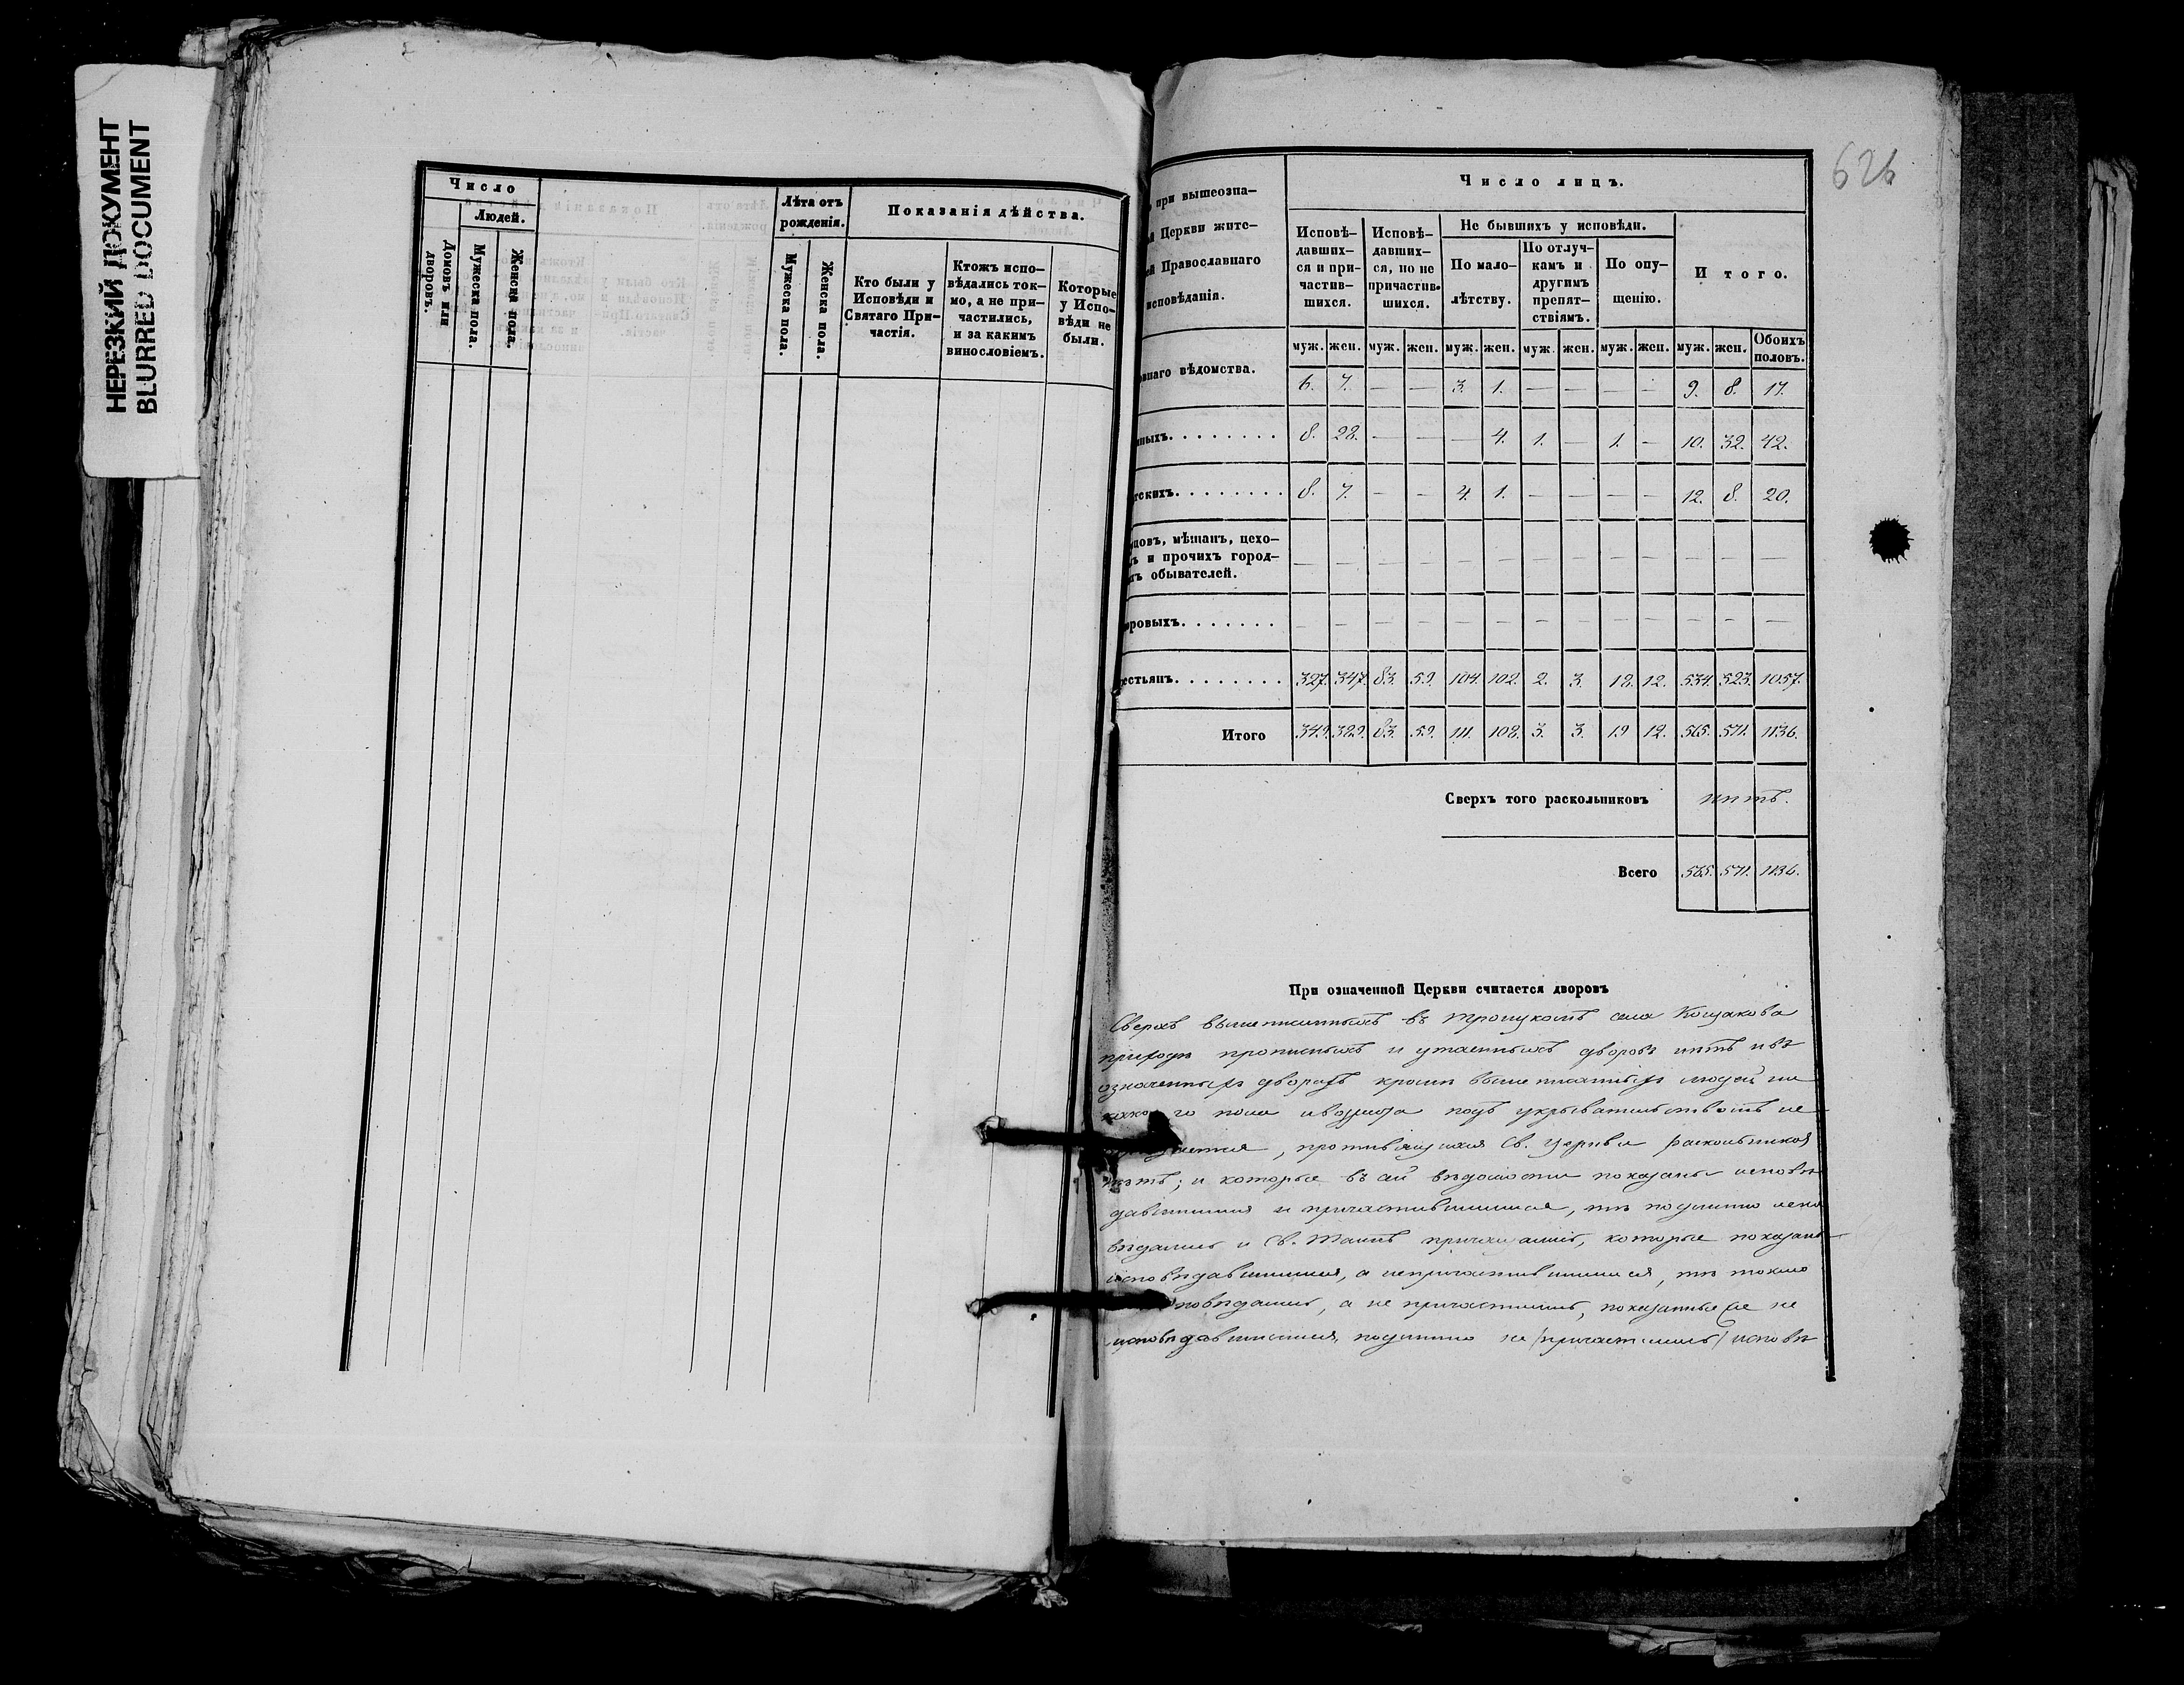 НЕРЕЗКИЙ ДОКУМЕНТ
BLURRED DOCUMENT
Число
Людей.
Домовъ или дворовъ.
Мужеска пола.
Женска пола.
Лѣта отъ рожденія.
Мужеска пола.
Женска пола.
Показанія дѣйства.
Кто были у Исповѣди и Святаго Причастія.
Ктожъ испо-
вѣдались ток-
мо, а не при-
частились,
и за какимъ
винословіемъ.
Которые
у Испо-
вѣди не
были.
626
при вышеозна-
Церкви жите-
Православнаго
исповѣданія.
Число лицъ.
Исповѣ-
давших-
ся и при-
частив-
шихся.
Исповѣ-
давших-
ся, но не
причастив-
шихся.
Не бывшихъ у исповѣди.
По мало-
лѣтству.
По отлуч-
камъ и
другимъ
препят-
ствіямъ.
По опу-
щенію.
Итого.
муж. жен. муж. жен. муж. жен. муж. жен. муж. жен. муж. жен. Обоихъ половъ.
внаго вѣдомства. 6. 7. — — 3. 1. — — — — 9. 8. 17.
ныхъ. 8. 28. — — — 4. 1. — 1. — 10. 32. 42.
тскихъ. 8. 7. — — 4. 1. — — — — 12. 8. 20.
цовъ, мѣщанъ, цехо-
ъ и прочихъ город-
хъ обывателей. — — — — — — — — — — — — —
оровыхъ. — — — — — — — — — — — — —
естьянъ. 327. 347. 83. 59. 104. 102. 2. 3. 18. 12. 534. 523. 1057.
Итого 349. 389. 83. 59. 111. 108. 3. 3. 19 12. 565. 571. 1136.
Сверхъ того раскольниковъ нѣтъ.
Всего 565. 571. 1136.
При означенной Церкви считается дворовъ
Сверхъ вышеписанныхъ въ Троицкомъ села Кощакова
приходѣ прописныхъ и утаенныхъ дворовъ нѣтъ и въ
означенныхъ дворахъ кромѣ вышеписанныхъ людей ни
какого пола и возраста подъ укрывательствомъ не
, противящихся Св. Церкви раскольниковъ
нѣтъ; и которые въ сей вѣдомости показаны исповѣ
давшимися и причастившимися, тѣ подлинно испо
вѣдались и Св. Таинъ причащались, которые показаны
исповѣдавшимися, а непричастившимися, тѣ токмо
исповѣдались, а не причастились, показанные же не
исповѣдавшимися, подлинно не (причастились) исповѣ